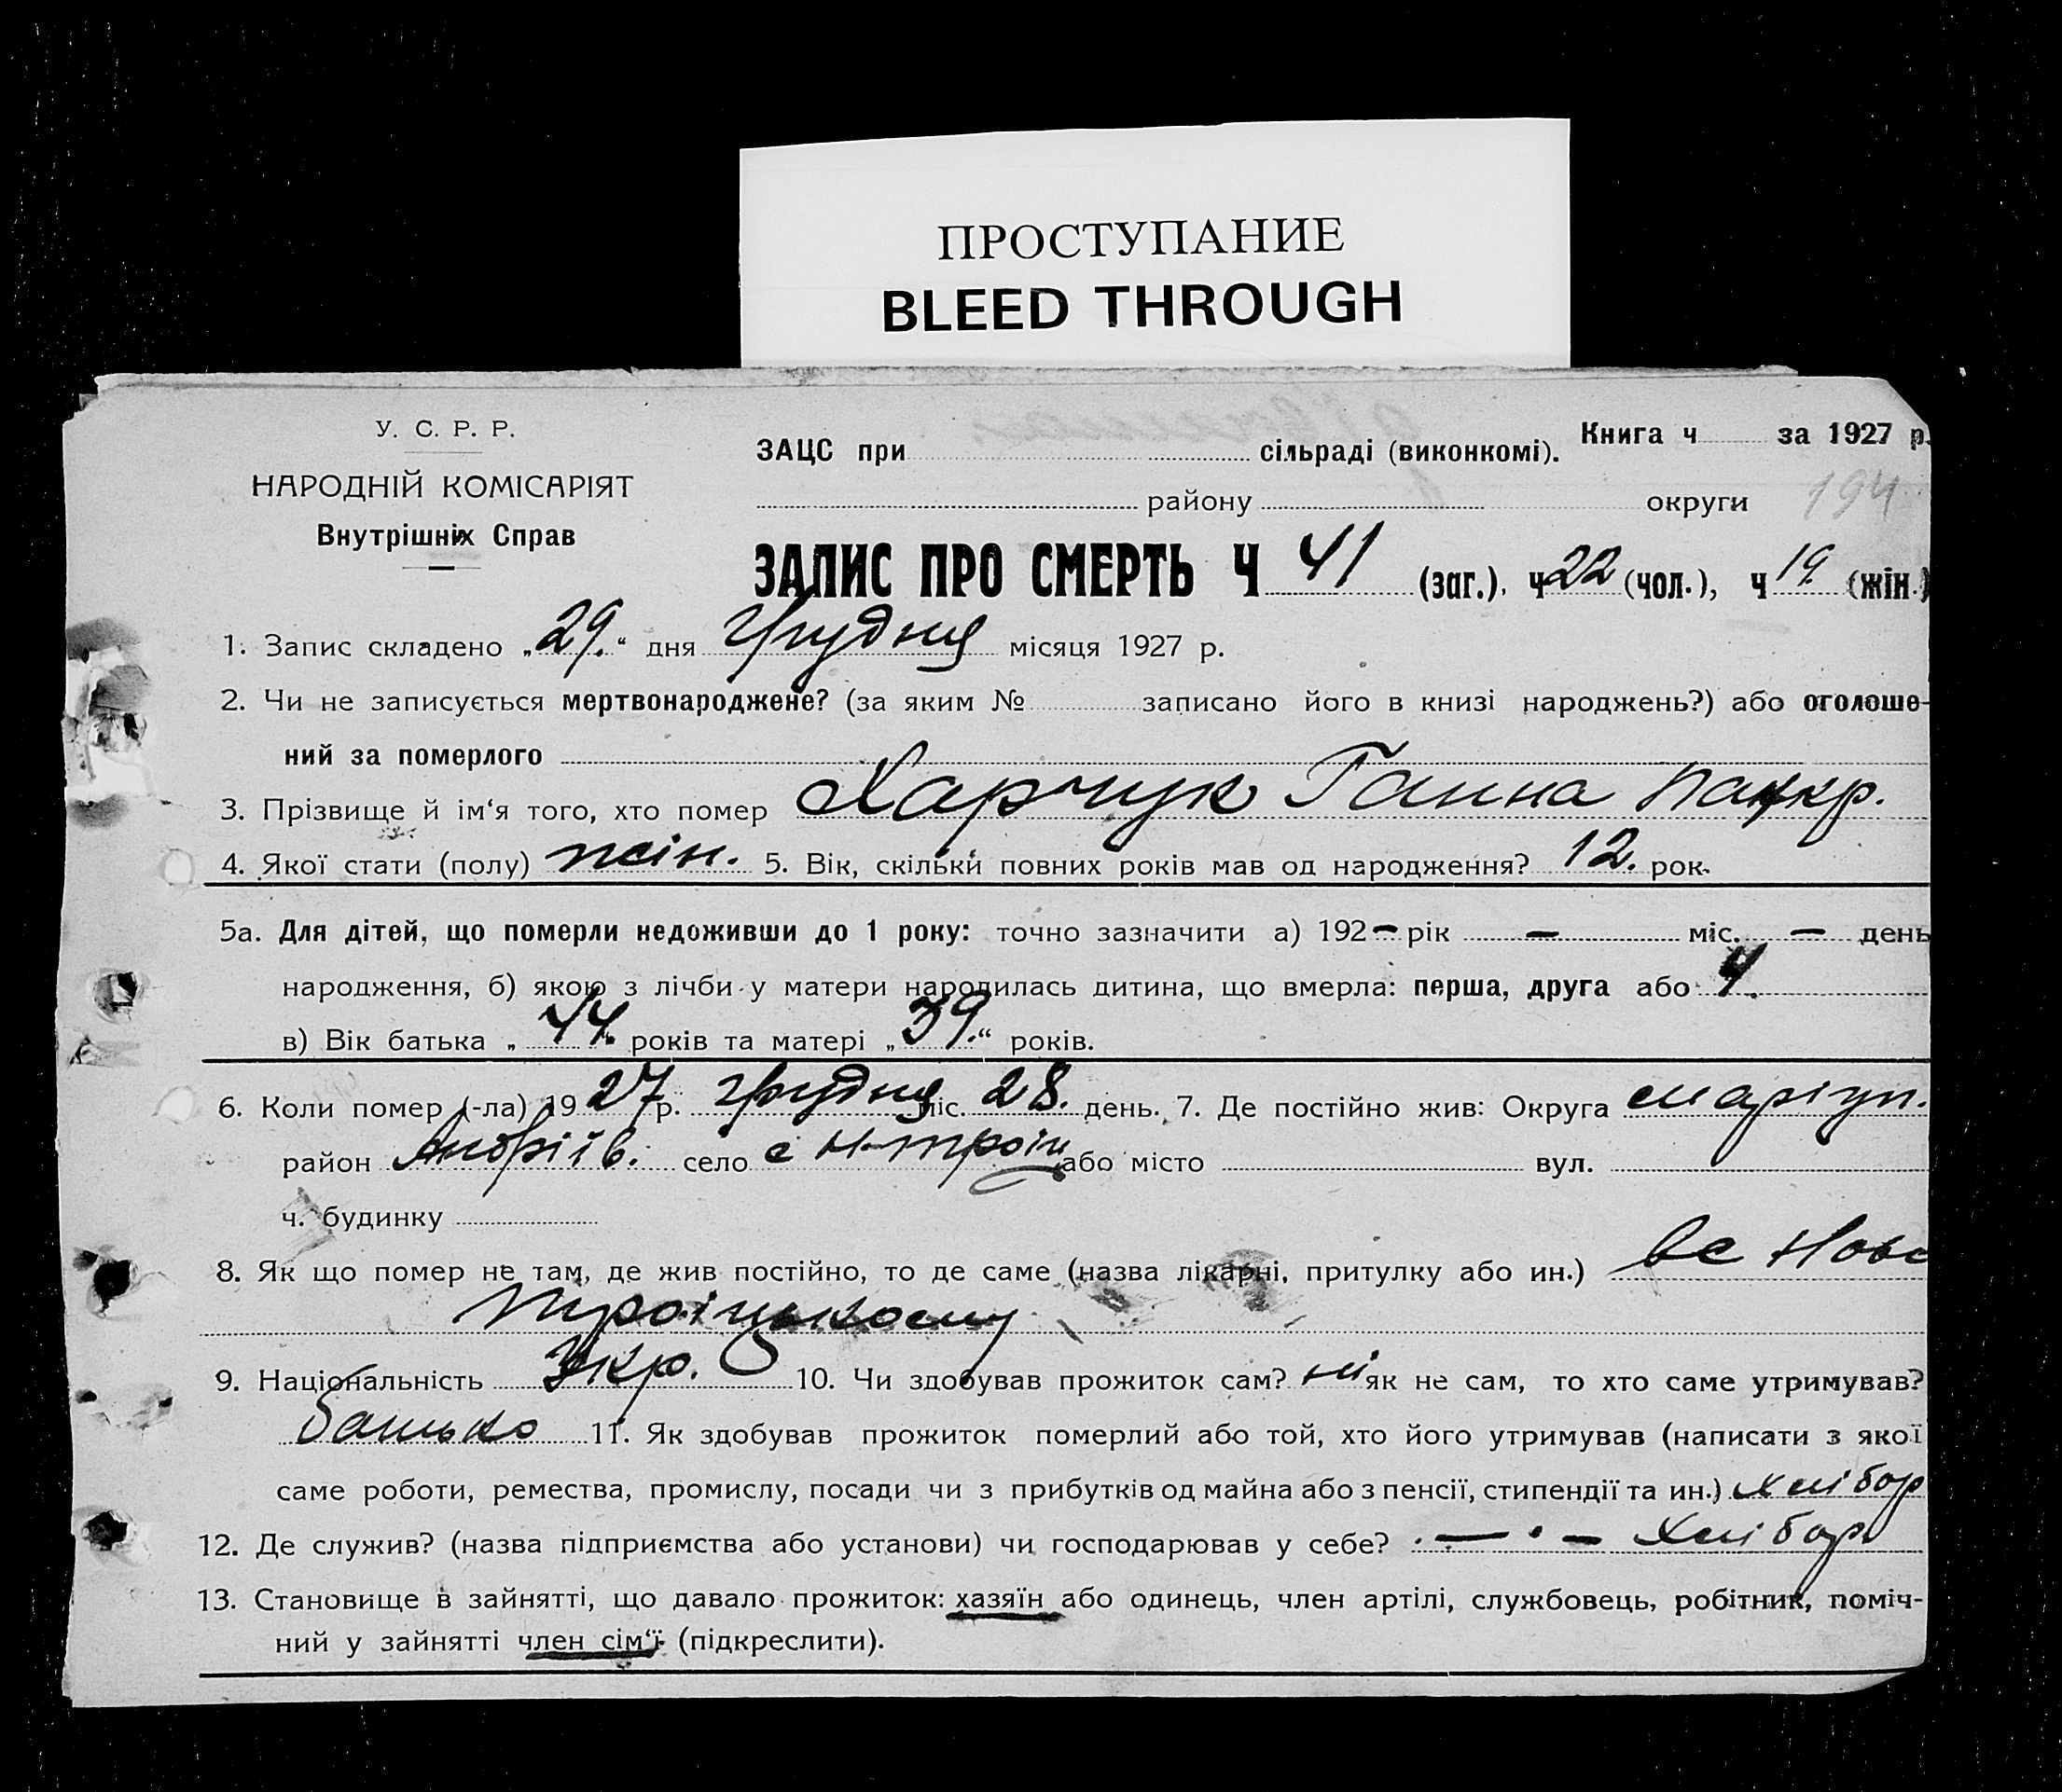 ПРОСТУПАНИЕ
BLEED THROUGH
У. С. Р. Р.
НАРОДНІЙ КОМІСАРІЯТ
Внутрішніх Справ
ЗАЦС при сільраді (виконкомі).
Книга ч за 1927 р.
району округи 194
ЗАПИС ПРО СМЕРТЬ Ч 41 (заг.), ч 22 (чол.), ч 19. (жін.)
1. Запис складено „29.“ дня грудня місяця 1927 р.
2. Чи не записується мертвонароджене? (за яким № записано його в книзі народжень?) або оголоше-
ний за померлого
3. Прізвище й ім‘я того, хто помер Харчук Ганна Панкр.
4. Якої стати (полу) жін. 5. Вік, скільки повних років мав од народження? 12. рок.
5а. Для дітей, що померли недоживши до 1 року: точно зазначити а) 192— рік — міс. — день
народження, б) якою з лічби у матери народилась дитина, що вмерла: перша, друга або 4.
в) Вік батька „44.“ років та матері „39.“ років.
6. Коли помер (-ла) 1927 р. грудня міс. 28. день. 7. Де постійно жив: Округа Маріуп.
район Андріїв. село с Н-Троїц або місто вул.
ч. будинку
8. Як що помер не там, де жив постійно, то де саме (назва лікарні, притулку або ин.) вс Ново
Троіцькому
9. Національність Укр. 10. Чи здобував прожиток сам? ні як не сам, то хто саме утримував?
батько 11. Як здобував прожиток померлий або той, хто його утримував (написати з якої
саме роботи, ремества, промислу, посади чи з прибутків од майна або з пенсії, стипендії та ин.) хлібор
12. Де служив? (назва підприємства або установи) чи господарював у себе? — · — Хлібор
13. Становище в зайнятті, що давало прожиток: хазяїн або одинець, член артілі, службовець, робітник, поміч-
ний у зайнятті член сім‘ї (підкреслити).